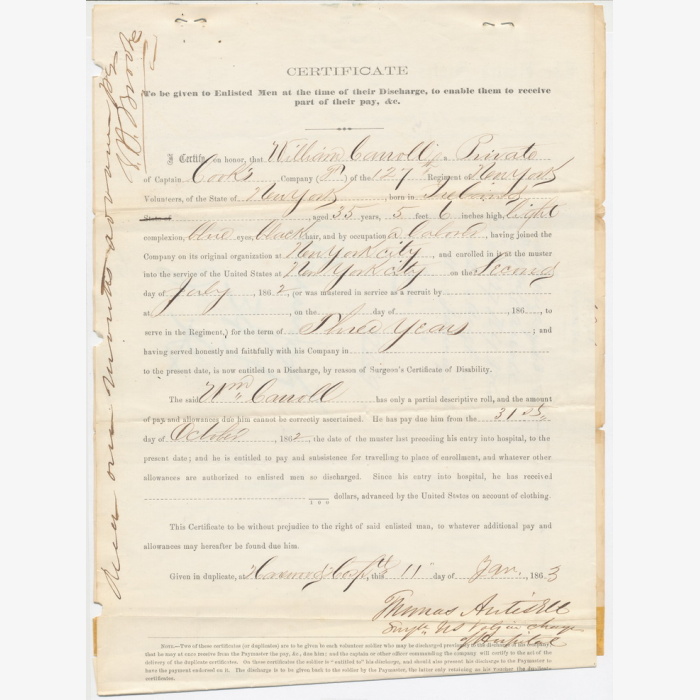 CERTIFICATE
To be given to Enlisted Men at the time of their Discharge, to enable them to receive
part of their pay, &c.
I Certify, on honor, that William Carroll a Private
of Captain Cook's Company ( ) of the 127 Regiment of New York
Volunteers, of the State of New York, born in Ireland
State of , aged 35 years, 5 feet 6 inches high, light
complexion, blue eyes, black hair, and by occupation a laborer, having joined the
Company on its original organization at New York city, and enrolled in it at the muster
into the service of the United States at New York city on the Second
day of July, 1862, (or was mustered in service as a recruit by
at , on the day of , 186 , to
serve in the Regiment,) for the term of Three Years ; and
having served honestly and faithfully with his Company in
to the present date, is now entitled to a Discharge, by reason of Surgeon's Certificate of Disability.
The said Wm Carroll has only a partial descriptive roll, and the amount
of pay and allowances due him cannot be correctly ascertained. He has pay due him from the 31st
day of October, 1862, the date of the muster last preceding his entry into hospital, to the
present date; and he is entitled to pay and subsistence for travelling to place of enrollment, and whatever other
allowances are authorized to enlisted men so discharged. Since his entry into hospital, he has received
100 dollars, advanced by the United States on account of clothing.
This Certificate to be without prejudice to the right of said enlisted man, to whatever additional pay and
allowances may hereafter be found due him.
Given in duplicate, at Harewood Hospital, this 11 day of Jan. 1863
Thomas Antisell
Surgn US Vols in charge
of Hospital
NOTE.—Two of these certificates (or duplicates) are to be given to each volunteer soldier who may be discharged
that he may at once receive from the Paymaster the pay, &c., due him; and the captain or other officer commanding the company will certify to the act of the
delivery of the duplicate certificates. On these certificates the soldier is "entitled to" his discharge, and should also present his discharge to the Paymaster to
have the payment endorsed on it. The discharge is to be returned to the soldier by the Paymaster, the latter only retaining as his voucher the duplicate
certificates.
one months advance